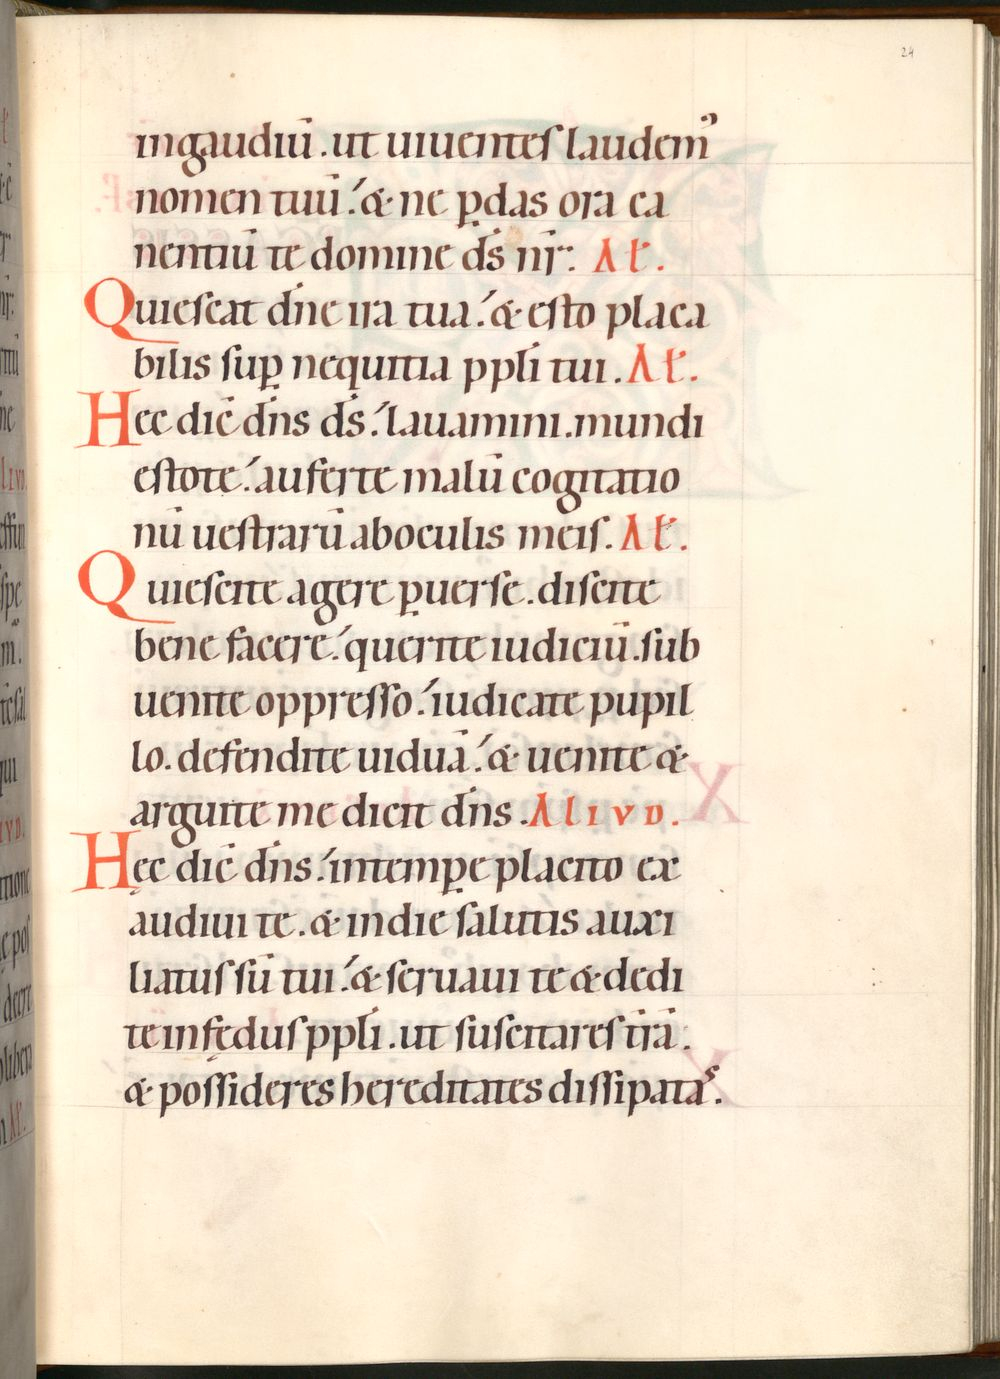 24
ingaudiū . ut uiuentes laudem᾽
nomen tuū : & ne p̱das ora ca
nentiū te domine dſ̄ nr̄ : Al̄ .
Quiescat dn̄e ira tua : & esto placa
bilis sup̱ nequitia ppl̄i tui . Al̄ .
Hec dic̄ dn̄s dſ̄ : lauamini . mundi
estote : auferte malū cogitatio
nū uestrarū aboculis meis . Al̄ .
Quiescite agere p̱uerse . discite
bene facere : querite iudiciū . sub
uenite oppresso : iudicate pupil
lo . defendite uiduā : & uenite &
arguite me dicit dn̄s . Aliud .
Hęc dic̄ dn̄s : intemp̱e placito ex
audiui te . & indie salutis auxi
liatus sū tui : & seruaui te & dedi
te infędus ppl̄i . ut suscitares tr̄ā :
& possideres hereditates dissipatas .